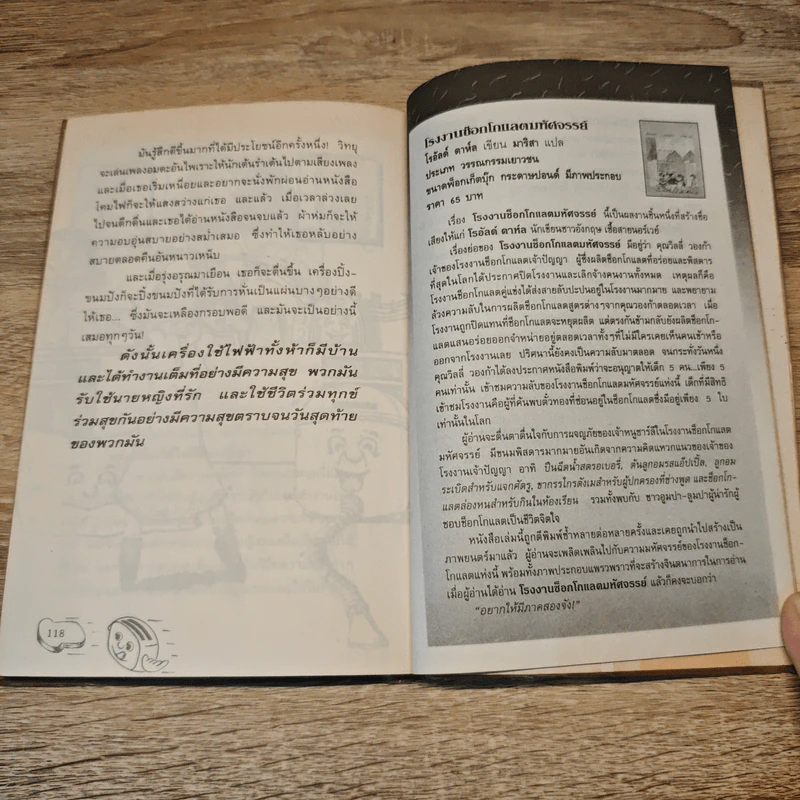 มันรู้สึกดีขึ้นมากที่ได้มีประโยชน์อีกครั้งหนึ่ง! วิทยุ
จะเล่นเพลงอมตะอันไพเราะให้นักเต้นรำเต้นไปตามเสียงเพลง
และเมื่อเธอเริ่มเหนื่อยและอยากจะนั่งพักผ่อนอ่านหนังสือ
โคมไฟก็จะให้แสงสว่างแก่เธอ และแล้ว เมื่อเวลาล่วงเลย
ไปจนดึกดื่นและเธอได้อ่านหนังสือจนจบแล้ว ผ้าห่มก็จะให้
ความอบอุ่นสบายอย่างสม่ำเสมอ ซึ่งทำให้เธอหลับอย่าง
สบายตลอดคืนอันหนาวเหน็บ
และเมื่อรุ่งอรุณมาเยือน เธอก็จะตื่นขึ้น เครื่องปิ้ง-
ขนมปังก็จะปิ้งขนมปังที่ได้รับการหั่นเป็นแผ่นบางๆอย่างดี
ให้เธอ... ซึ่งมันจะเหลืองกรอบพอดี และมันจะเป็นอย่างนี้
เสมอทุกๆวัน!
ดังนั้นเครื่องใช้ไฟฟ้าทั้งห้าก็มีบ้าน
และได้ทำงานเต็มที่อย่างมีความสุข พวกมัน
รับใช้นายหญิงที่รัก และใช้ชีวิตร่วมทุกข์
ร่วมสุขกันอย่างมีความสุขตราบจนวันสุดท้าย
ของพวกมัน
118
โรงงานช็อกโกแลตมหัศจรรย์
โรอัลด์ ดาห์ล เขียน มาริสา แปล
ประเภท วรรณกรรมเยาวชน
ขนาดพ็อกเก็ตบุ๊ก กระดาษปอนด์ มีภาพประกอบ
ราคา 65 บาท
เรื่อง โรงงานช็อกโกแลตมหัศจรรย์ นี้เป็นผลงานชิ้นหนึ่งที่สร้างชื่อ
เสียงให้แก่ โรอัลด์ ดาห์ล นักเขียนชาวอังกฤษ เชื้อสายนอร์เวย์
เรื่องย่อของ โรงงานช็อกโกแลตมหัศจรรย์ มีอยู่ว่า คุณวิลลี่ วองก้า
เจ้าของโรงงานช็อกโกแลตเจ้าปัญญา ผู้ซึ่งผลิตช็อกโกแลตที่อร่อยและพิสดาร
ที่สุดในโลกได้ประกาศปิดโรงงานและเลิกจ้างคนงานทั้งหมด เหตุผลก็คือ
โรงงานช็อกโกแลตคู่แข่งได้ส่งสายลับปะปนอยู่ในโรงงานมากมาย และพยายาม
ล้วงความลับในการผลิตช็อกโกแลตสูตรต่างๆจากคุณวองก้าตลอดเวลา เมื่อ
โรงงานถูกปิดแทนที่ช็อกโกแลตจะหยุดผลิต แต่ตรงกันข้ามกลับยังผลิตช็อกโก-
แลตแสนอร่อยออกจำหน่ายอยู่ตลอดเวลาทั้งๆที่ไม่มีใครเคยเห็นคนเข้าหรือ
ออกจากโรงงานเลย ปริศนานี้ยังคงเป็นความลับมาตลอด จนกระทั่งวันหนึ่ง
คุณวิลลี่ วองก้าได้ลงประกาศหนังสือพิมพ์ว่าจะอนุญาตให้เด็ก 5 คน...เพียง 5
คนเท่านั้น เข้าชมความลับของโรงงานช็อกโกแลตมหัศจรรย์แห่งนี้ เด็กที่มีสิทธิ
เข้าชมโรงงานคือผู้ที่ค้นพบตั๋วทองที่ซ่อนอยู่ในช็อกโกแลตซึ่งมีอยู่เพียง 5 ใบ
เท่านั้นในโลก
ผู้อ่านจะตื่นตาตื่นใจกับการผจญภัยของเจ้าหนูชาร์ลีในโรงงานช็อกโกแลต
มหัศจรรย์ มีขนมพิสดารมากมายอันเกิดจากความคิดแหวกแนวของเจ้าของ
โรงงานเจ้าปัญญา อาทิ ปืนฉีดน้ำสตรอเบอรี่, ต้นลูกอมรสแอ๊ปเปิ้ล, ลูกอม
ระเบิดสำหรับแจกศัตรู, ขากรรไกรตังเมสำหรับผู้ปกครองที่ช่างพูด และช็อกโก-
แลตล่องหนสำหรับกินในห้องเรียน รวมทั้งพบกับ ชาวอูมปา-ลูมปาผู้น่ารักผู้
ชอบช็อกโกแลตเป็นชีวิตจิตใจ
หนังสือเล่มนี้ถูกตีพิมพ์ซ้ำหลายต่อหลายครั้งและเคยถูกนำไปสร้างเป็น
ภาพยนตร์มาแล้ว ผู้อ่านจะเพลิดเพลินไปกับความมหัศจรรย์ของโรงงานช็อก-
โกแลตแห่งนี้ พร้อมทั้งภาพประกอบแพรวพราวที่จะสร้างจินตนาการในการอ่าน
เมื่อผู้อ่านได้อ่าน โรงงานช็อกโกแลตมหัศจรรย์ แล้วก็คงจะบอกว่า
"อยากให้มีภาคสองจัง!"